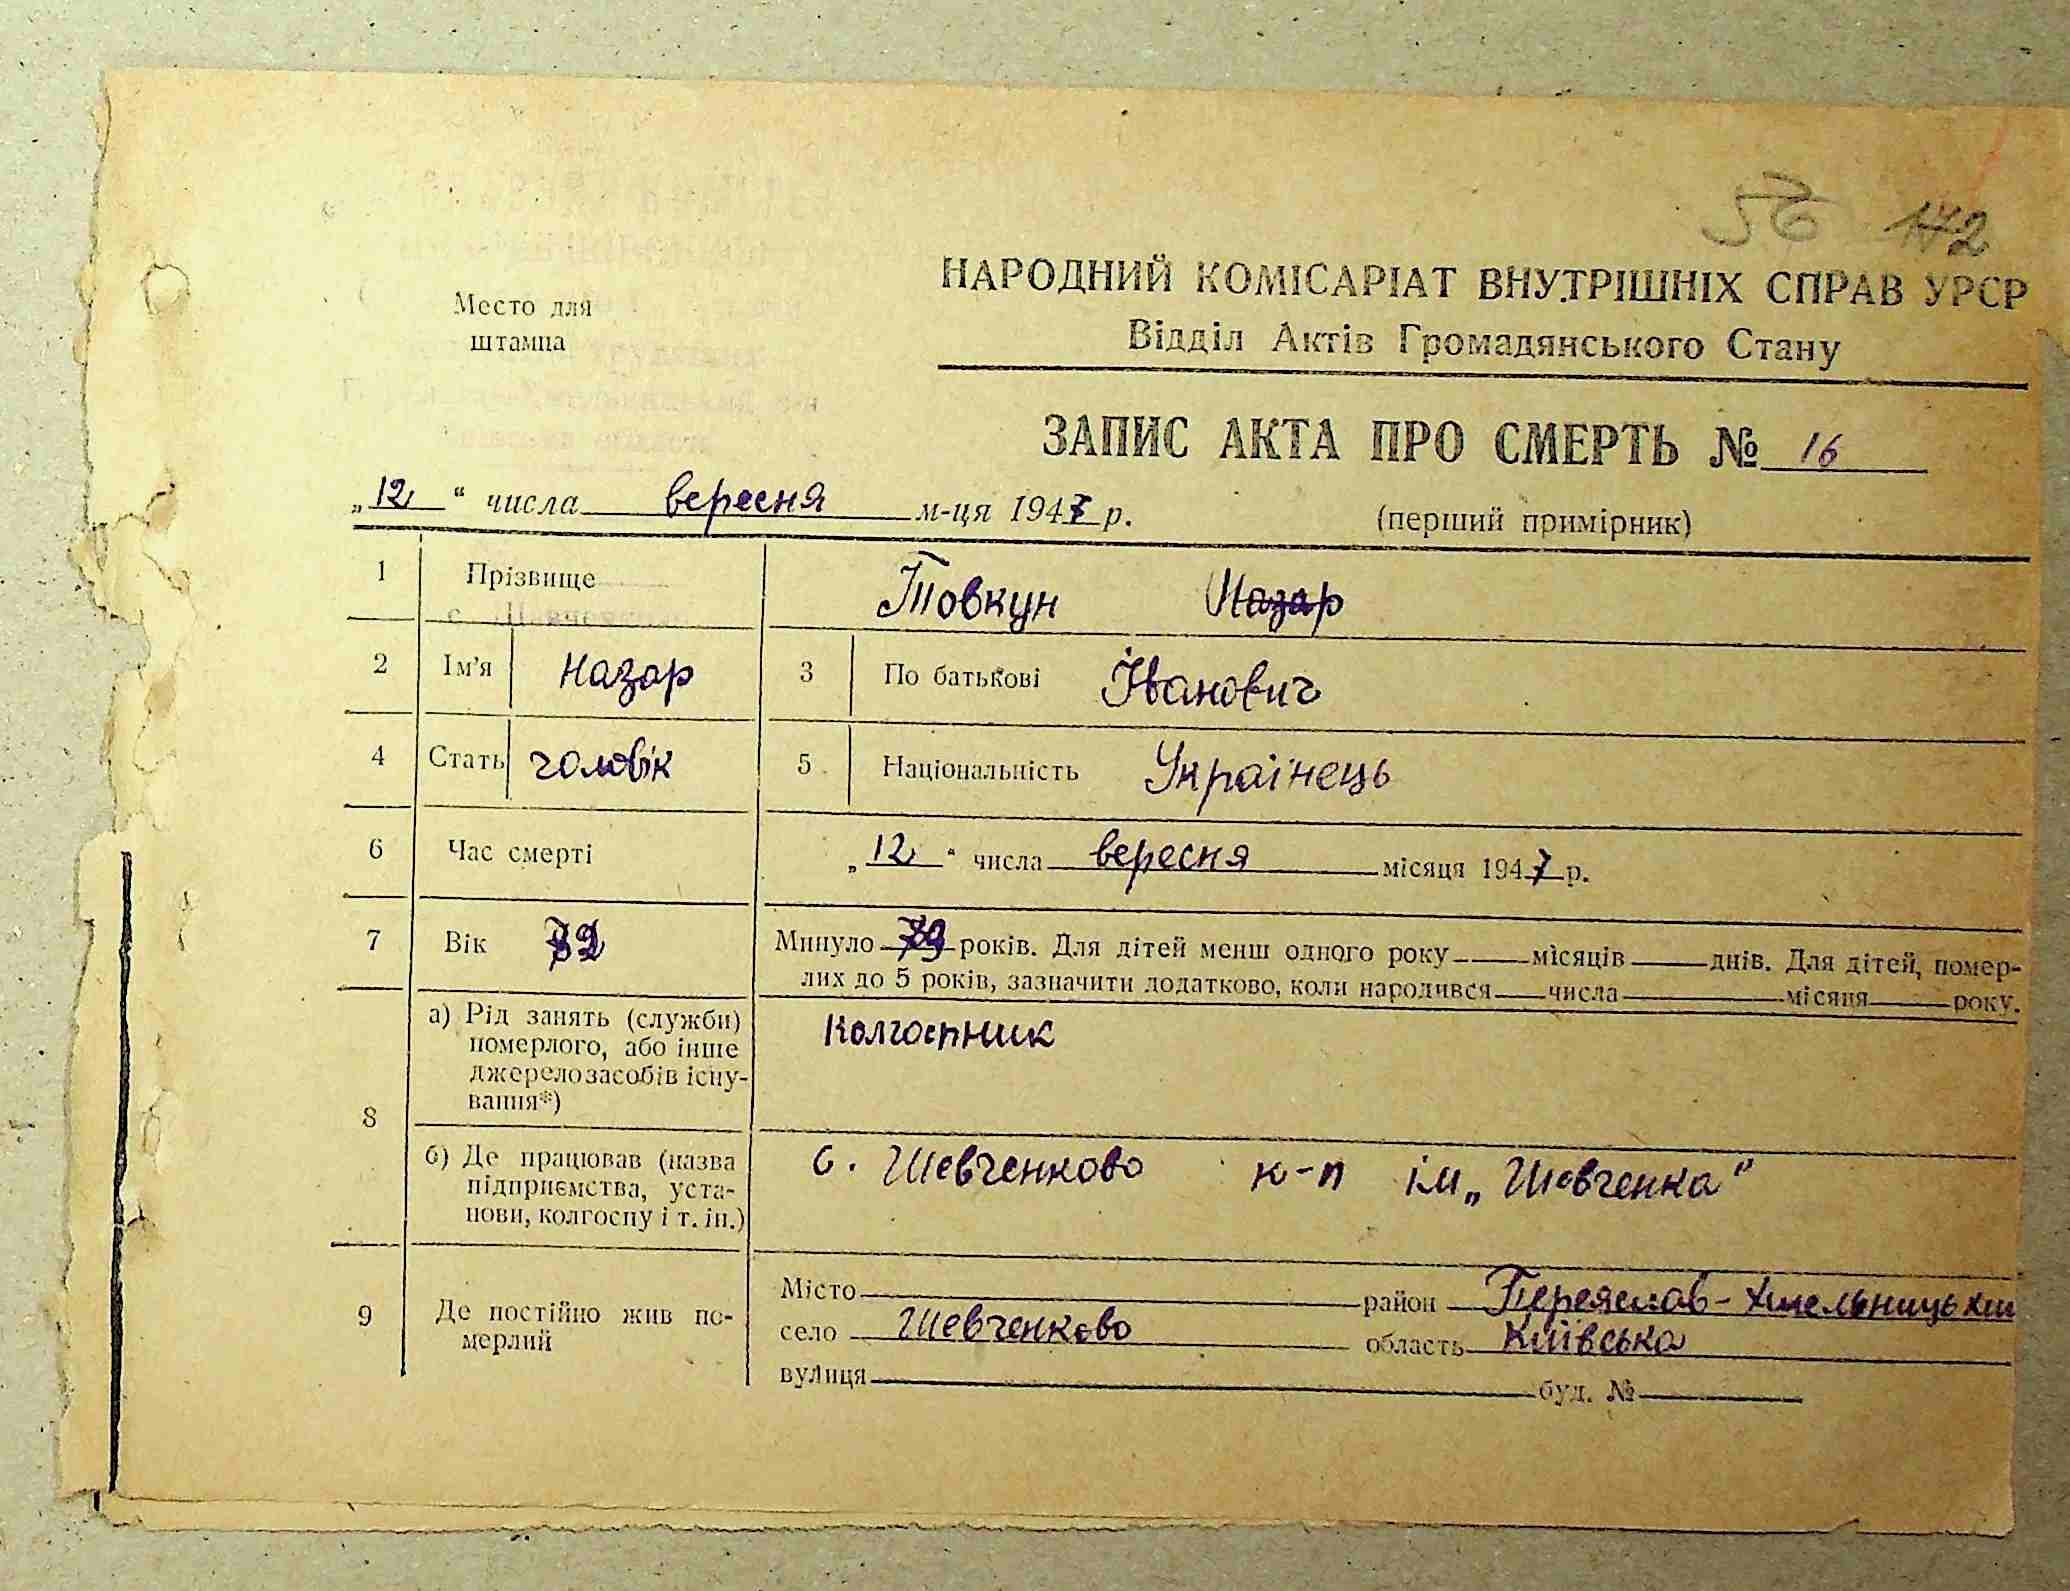 56 172
Место для
штампа
НАРОДНИЙ КОМІСАРІАТ ВНУТРІШНІХ СПРАВ УРСР
Відділ Актів Громадянського Стану
ЗАПИС АКТА ПРО СМЕРТЬ № 16
„12“ числа вересня м-ця 1947 р. (перший примірник)
1 Прізвище Товкун Назар
2 Ім'я Назар 3 По батькові Іванович
4 Стать чоловік 5 Національність Українець
6 Час смерті „12“ числа вересня місяця 1947 р.
7 Вік Минуло років. Для дітей менш одного року місяців днів. Для дітей, помер-
лих до 5 років, зазначити додатково, коли народився числа місяця року.
8 а) Рід занять (служби) Колгоспник
померлого, або інше
джерело засобів існу-
вання*)
б) Де працював (назва с. Шевченково к-п ім „Шевченка"
підприємства, уста-
нови, колгоспу і т. ін.)
9 Де постійно жив по-
мерлий
Місто район Переяслав-Хмельницький
село Шевченково область Київська
вулиця буд. №